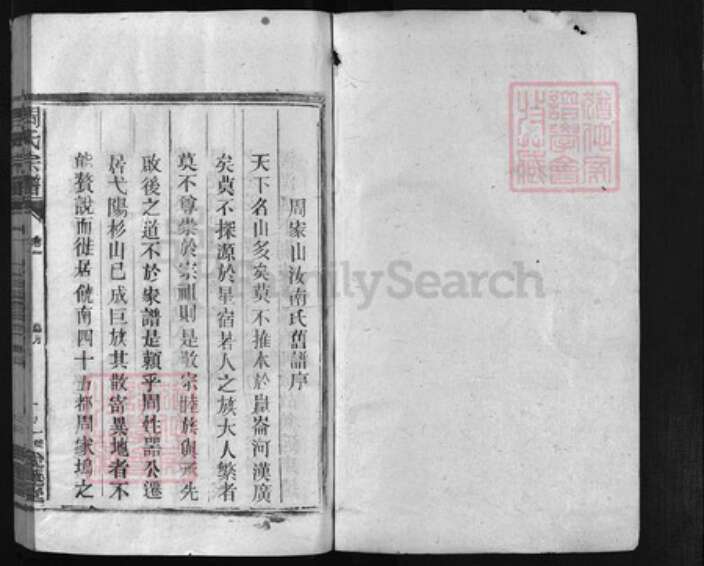 周家山汝南氏舊譜序
天下名山多矣莫不推本於崑崙河漢廣
矣莫不探源於星宿若人之族大人繁者
莫不尊崇於宗祖則是敬宗睦族與承先
啟後之道不於家譜是賴乎周姓器公遷
居弋陽杉山已成巨族其散寄異地者不
能贅說而徙居饒南四十五都周家塢之
周氏宗譜
卷一
FamilySearch